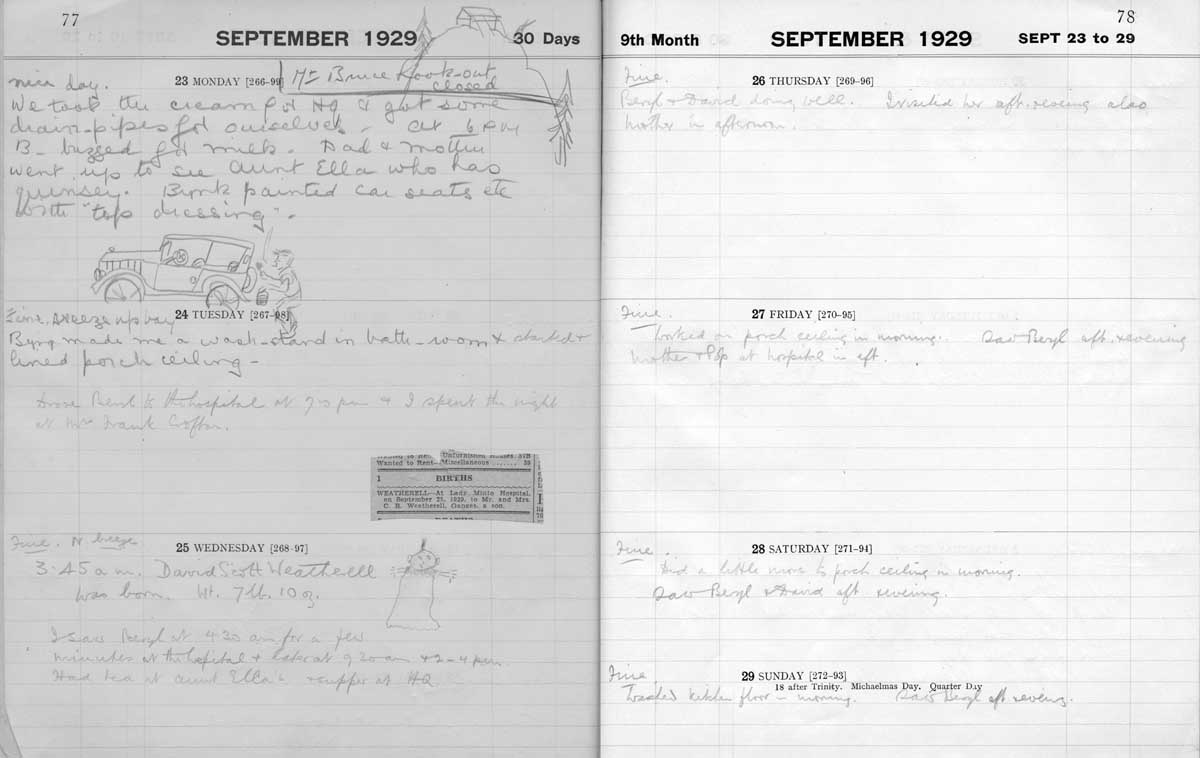 77
SEPTEMBER 1929
30 Days
23 MONDAY [266-99]
Mt Bruce Look-out
closed
nice day.
We took the cream for HQ & got some
drain-pipes for ourselves - at 6 pm
B- buzzed for milk. Dad & mother
went up to see Aunt Ella who has
quinsey. Bonk painted car seats etc
with "top dressing".
24 TUESDAY [267-98]
Fine. breeze up bay
me wash-stand in bath-room & started
lined porch ceiling -
Drove Beryl to the hospital at 7.15 pm & I spent the night
at Mrs Frank Crofton.
Wanted to Rent Unfurnished Houses 37B
Wanted to Rent-Miscellaneous ....... 39
1 BIRTHS
WEATHERELL-At Lady Minto Hospital,
on September 25, 1929, to Mr. and Mrs.
C. B. Weatherell, Ganges, a son.
25 WEDNESDAY [268-97]
Fine. N. breeze
3.25 a.m. David Scott Weatherell
was born. Wt. 7 lb. 10 oz.
I saw Beryl at 4.30 am for a few
minutes at the hospital & later at 9.20 am & 2-4 pm.
Had tea at Aunt Ella's & supper at HQ
78
9th Month
SEPTEMBER 1929
SEPT 23 to 29
26 THURSDAY [269-96]
Fine.
Beryl & David doing well. I visited her aft. & evening also
mother in afternoon.
27 FRIDAY [270-95]
Fine.
Worked on porch ceiling in morning. Saw Beryl aft. & evening
mother & Pop at hospital in aft.
28 SATURDAY [271-94]
Fine.
Did a little more to porch ceiling in morning.
Saw Beryl & David aft & evening.
29 SUNDAY [272-93]
18 after Trinity. Michaelmas Day. Quarter Day
Fine
Washed kitchen floor in morning. Saw Beryl aft & evening.